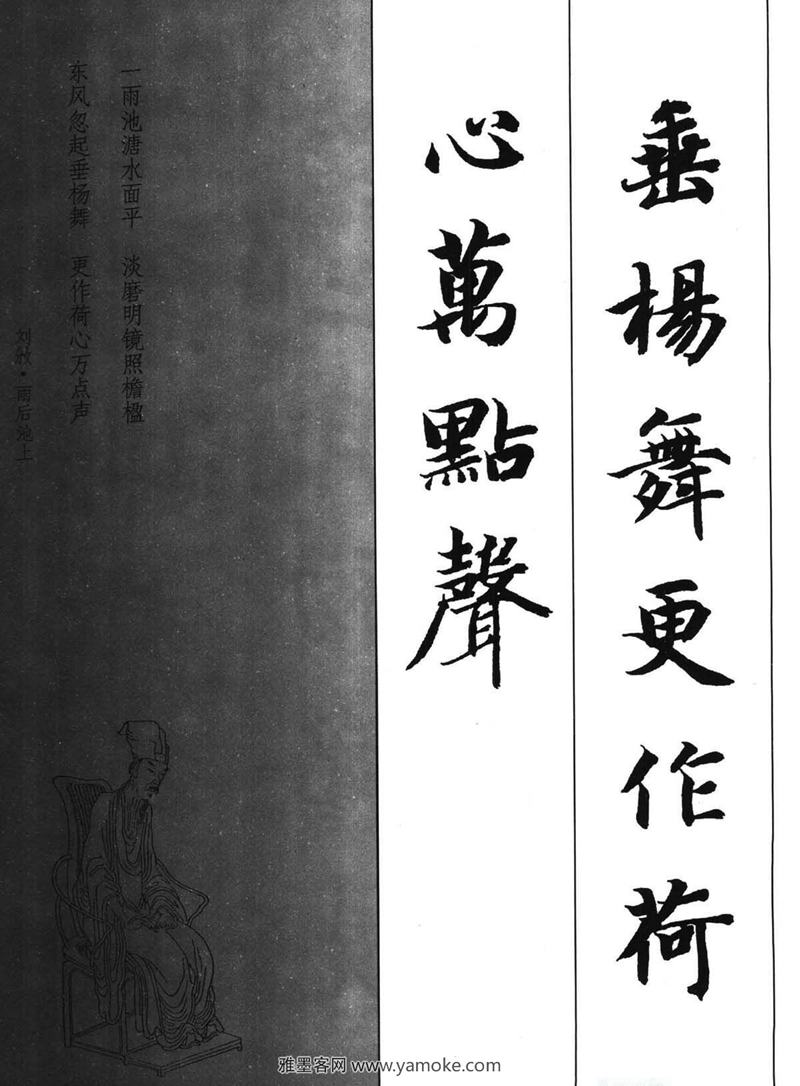 垂楊舞更作荷
心萬點聲
一雨池溏水面平 淡磨明镜照檐楹
东风忽起垂杨舞 更作荷心万点声
刘攽·雨后池上
雅墨客网 www.yamoke.com